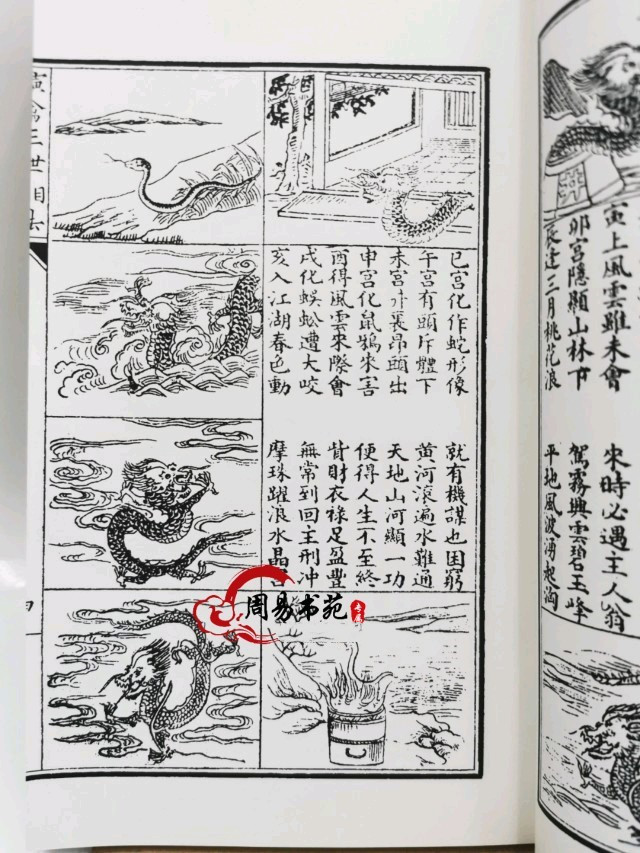 寅上風雲雖未會
來時必遇主人翁
卯宮隱顯山林下
駕霧興雲碧玉峰
辰逢三月桃花浪
平地風波湧起
井
巳宮化作蛇形像
就有機謀也困窮
午宮有頭斥體下
黃河滾遍水難通
未宮裏昂頭出
天地山河顯一功
申宮化鼠鵝來害
便得人生不至終
酉得風雲來際會
貲財衣祿足盈豐
戌化蜈蚣遭大咬
無常到回主刑冲
亥入江湖春色動
摩珠躍浪水晶
禽三世相
周易书苑